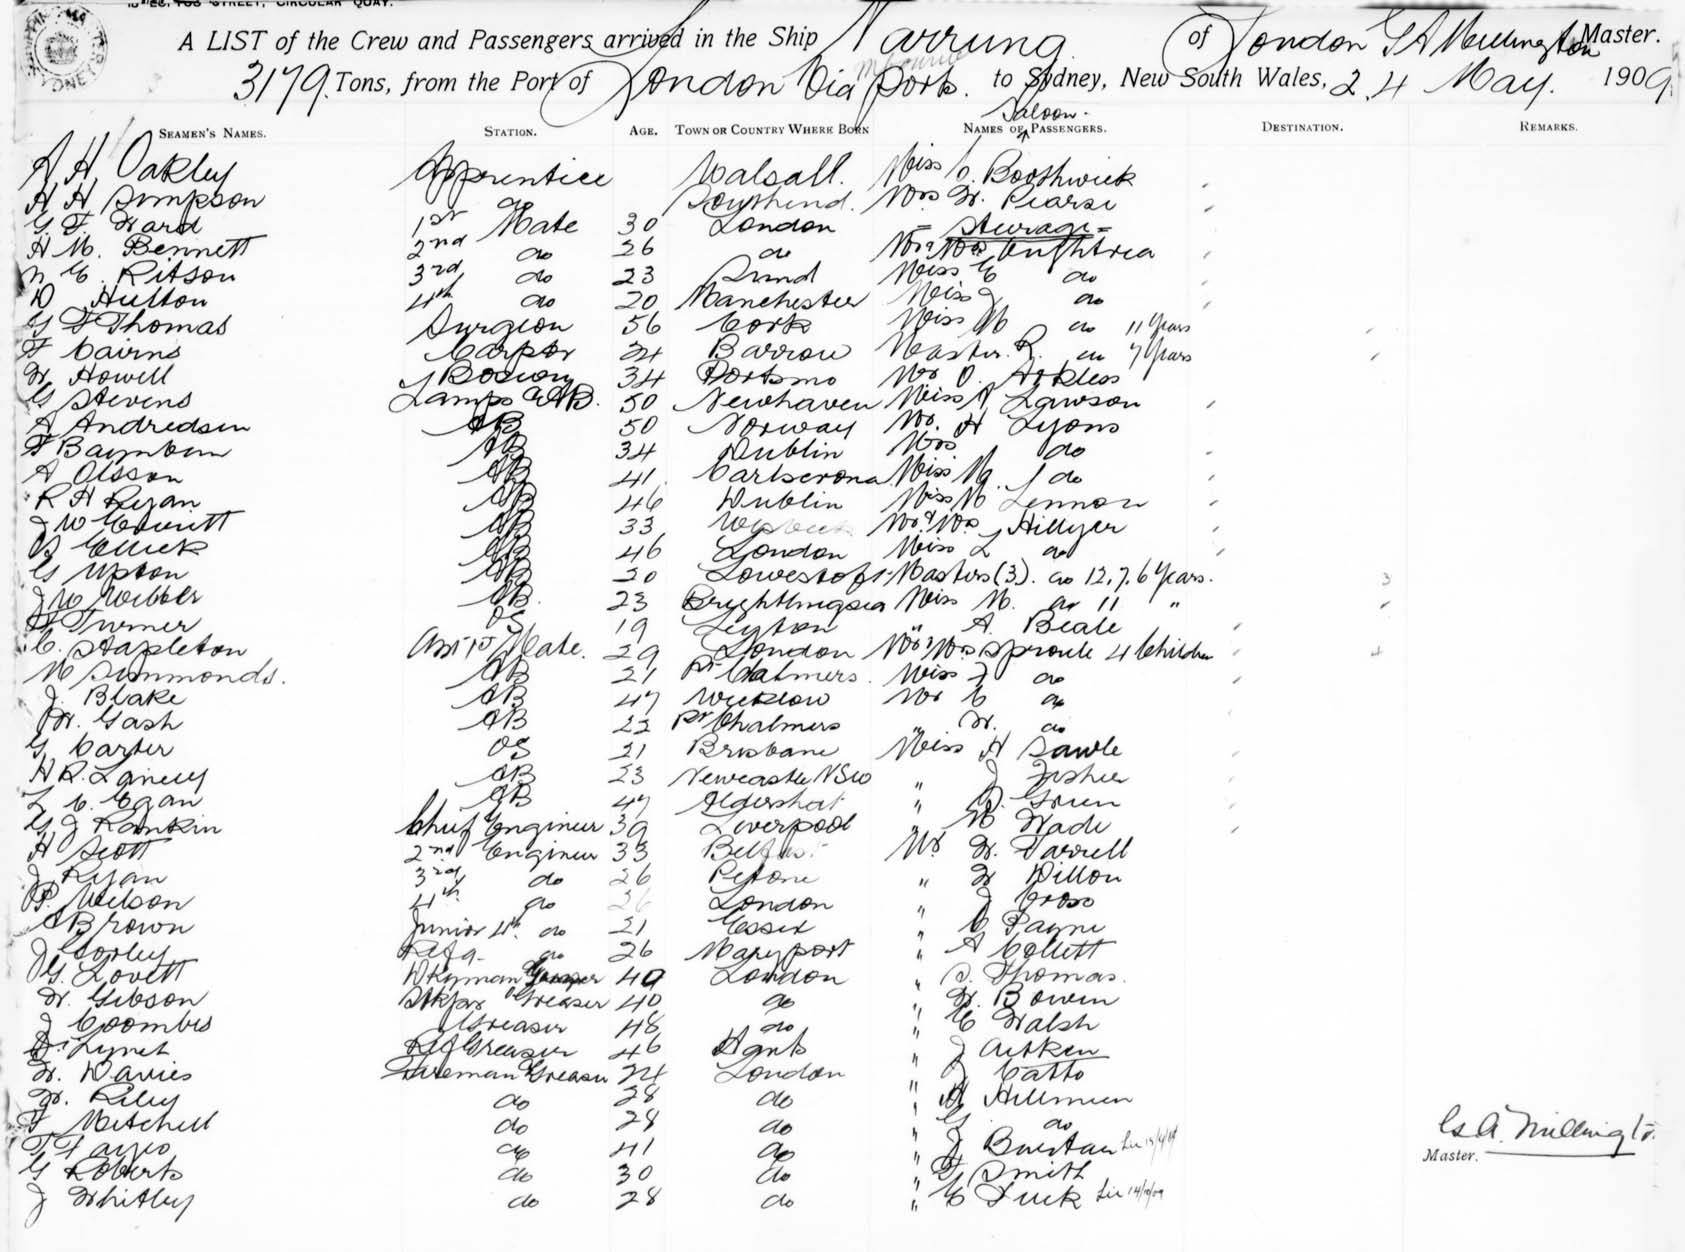 A LIST of the Crew and Passengers arrived in the Ship Narrung of London G A Millington Master.
3179 Tons, from the Port of London Via ports. to Sydney, New South Wales, 24 May. 1909
SEAMEN'S NAMES. STATION. AGE. TOWN OR COUNTRY WHERE BORN NAMES OF Saloon PASSENGERS. DESTINATION. REMARKS.
A. H. Oakley Apprentice Walsall. Miss Boothwick
H H Simpson do Southend. Mrs W. Pearse
G. F. Ward 1st Mate 30 London = Steerage =
H M. Bennett 2nd do 26 do Mr & Mrs
Ritson 3rd do 23 Miss E do
D Hulton 4th do 20 Manchester Miss J do
G F Thomas Surgeon 56 Cork Miss M do 11 Years
F Cairns Carptr 24 Barrow Master. R. do 7 Years
W. Howell Boswn 34 Portsmo Mr O. Arkless
G Stevens Lamps & AB. 50 Newhaven Miss A Lawson
A Andredsen AB 50 Norway Mr. H Lyons
F AB 34 Dublin Mrs do
A Olsson AB 41 Carlscrona Miss M. do
R H Ryan AB 46 Dublin Miss M Lennon
J W Everitt AB 33 Mr & Mrs Hillyer
AB 46 London Miss L do
G Upton AB 20 Lowestoft Masters (3). do 12, 7, 6 Years. 3
J W Webber AB. 23 Brightlingsea Miss M. do 11 "
Turner OS 19 Leyton " A. Beale
C. Stapleton Asst 1st Mate. 29 London Mr & Mrs Sproule 4 Children 4
M Simmonds. AB 21 Pt Chalmers. Miss J do
J. Blake AB 47 Wicklow Mr C do
W. Gash AB 22 Pt Chalmers " W. do
G Carter OS 21 Brisbane Miss H Sawle
H R. AB 23 Newcastle NSW " J Fisher
L C. Egan AB 47 Aldershot " Green
G J Rankin Chief Engineer 39 Liverpool " M Wade
H Scott 2nd Engineer 33 Belfast Mr W. Darrell
J Ryan 3rd do 26 Petone " W Dillon
P. Wilson 4th do 26 London " J Cross
A Brown Junior 4th do 21 Essex " C Payne
J Corley Refg. do 26 Maryport " A Collett
G. Lovett Dkyman Greaser 40 London " S. Thomas.
W. Gibson Stkpr Greaser 40 do " W. Bowen
J Coombes Greaser 48 do " E Walsh
D. Lynch Ref Greaser 46 Hants " J Aitken
W. Davies Fireman Greaser 24 London " J Catto
W. Riley do 28 do " A Hillman
F Mitchell do 28 do " G do
do 41 do " J
G Roberts do 30 do " Smith
J Whitley do 28 do " E Tuck
G. A. Millington
Master.